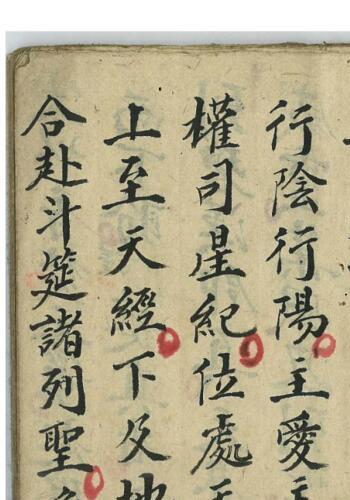 行陰行陽主愛
權司星紀位處
上至天經下及地
合赴斗筵諸列聖